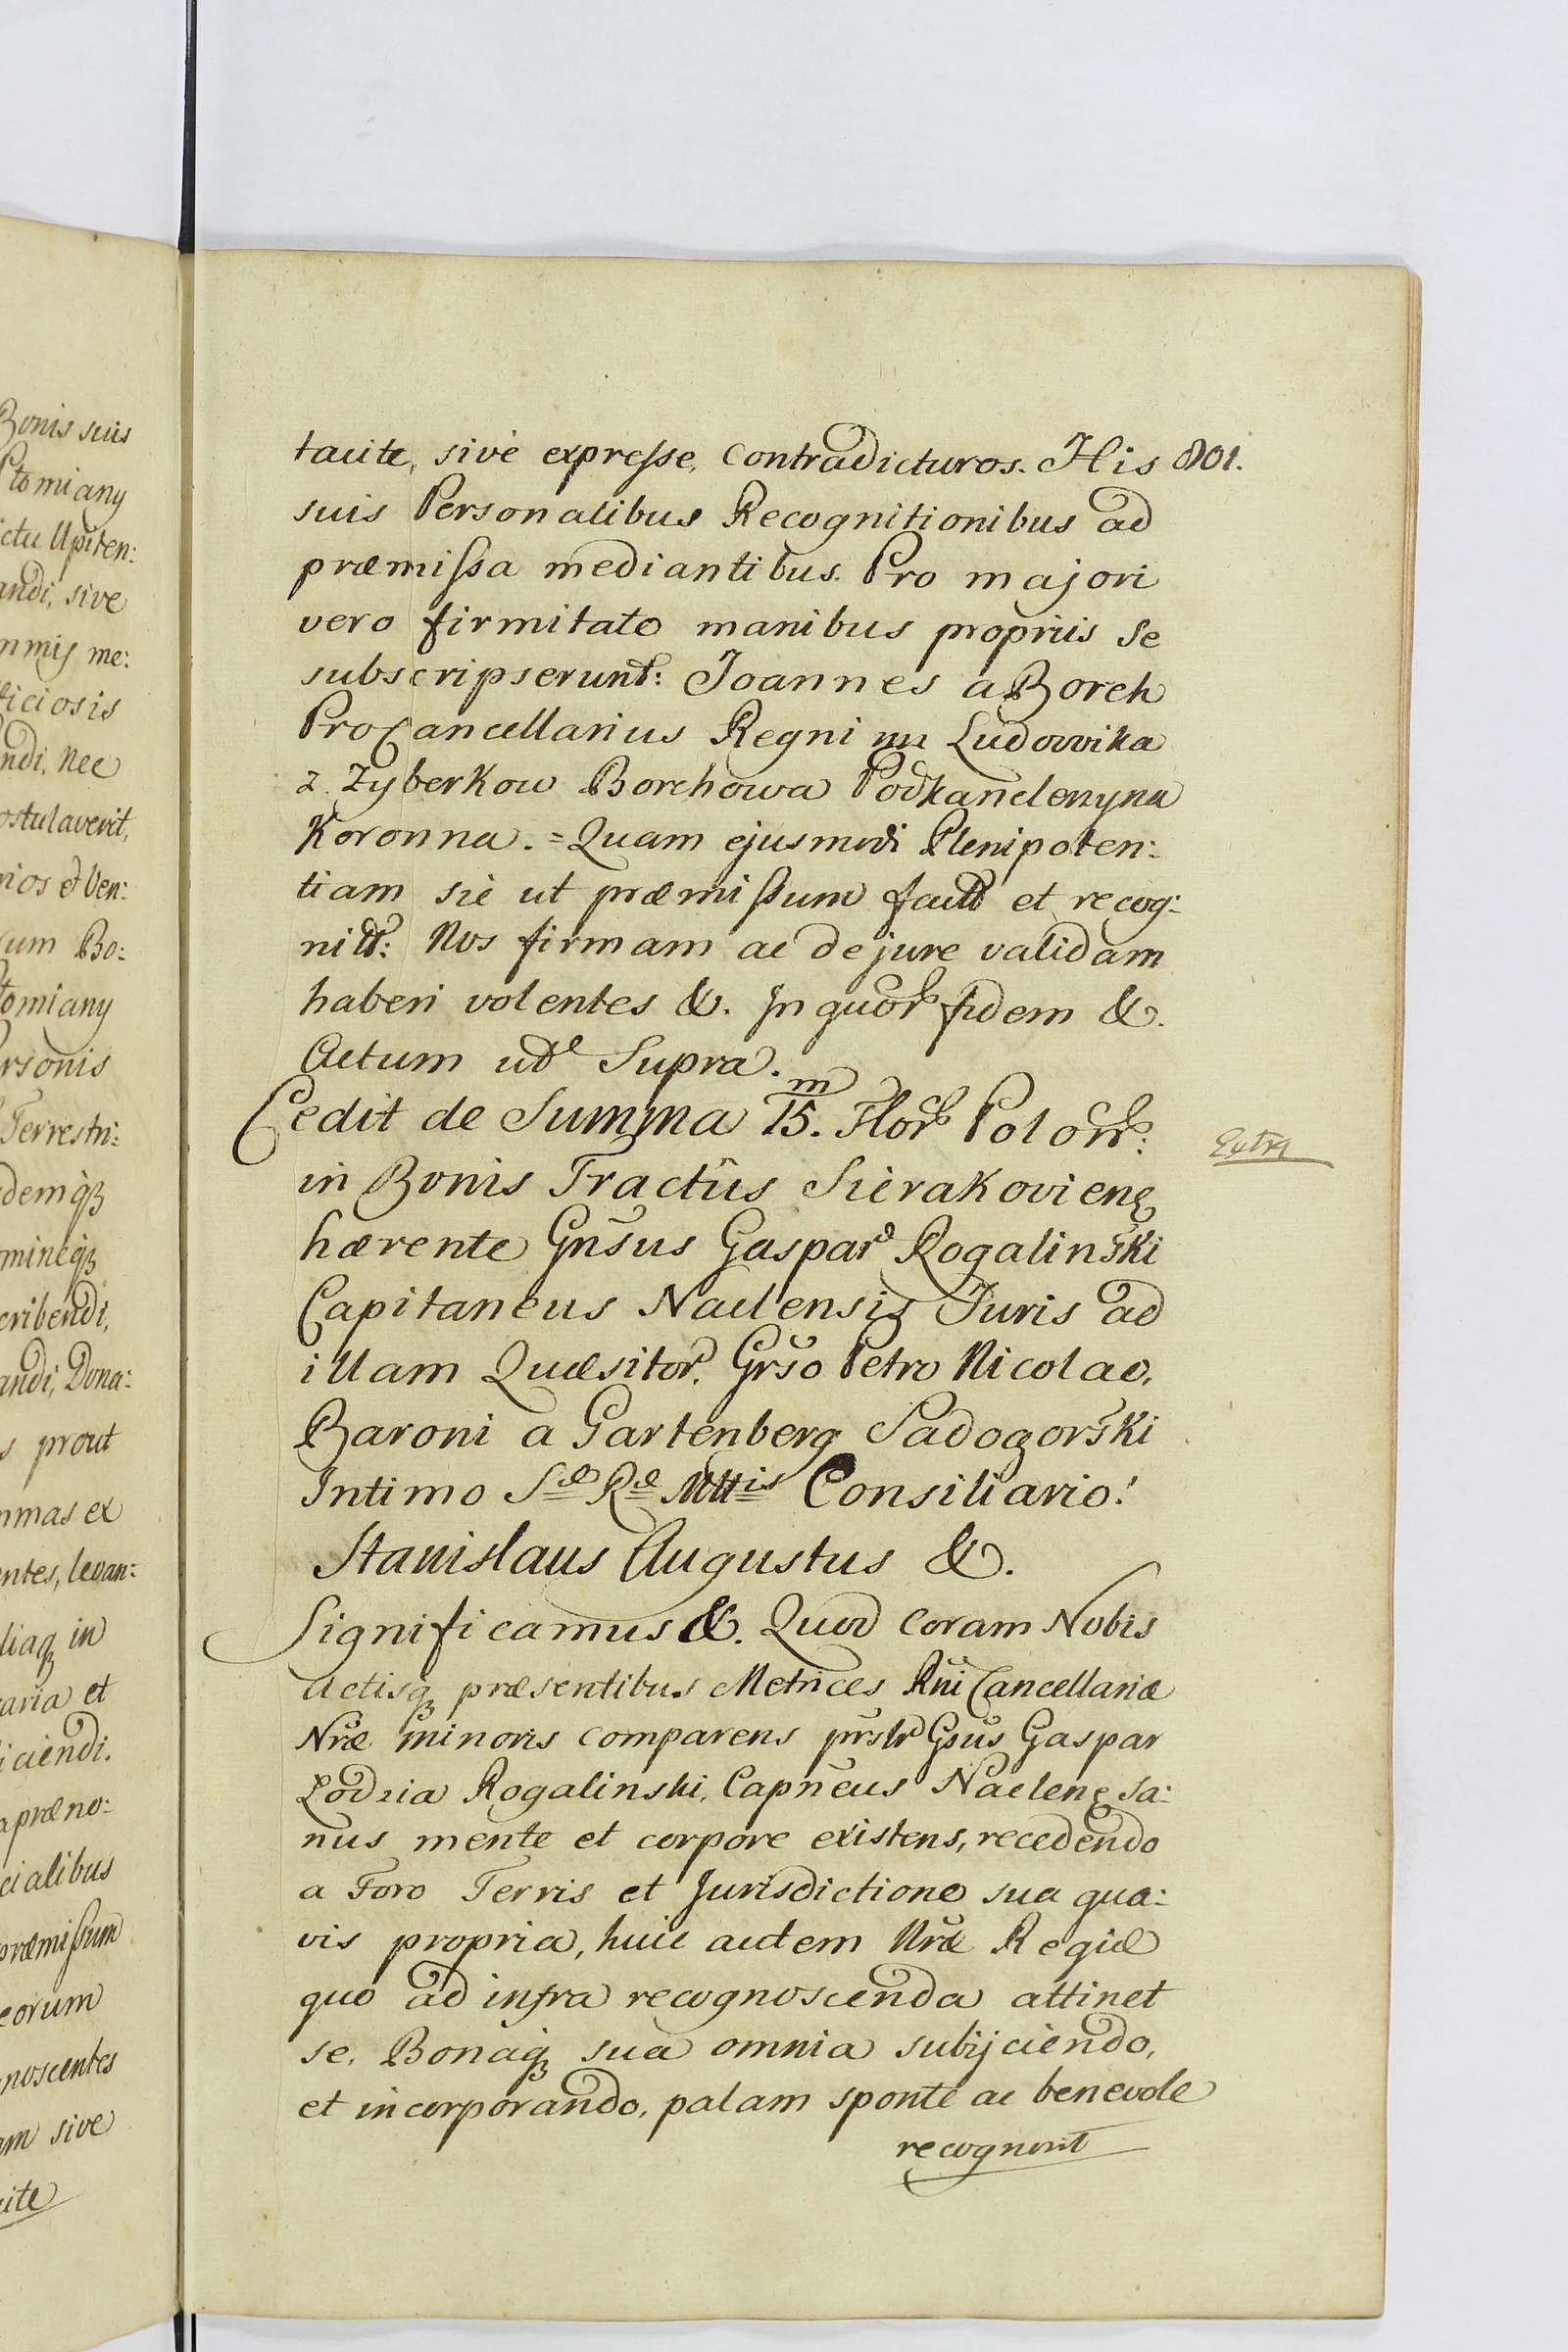 Bonis suis
Ptomiany
ctu Upiten:
andi, sive
mmis me:
ficiosis
ndi, nec
ostulaverit,
rios et Ven:
cum Bo:
tomiany
ersonis
Terrestri:
demqз
mineqз
cribendi,
andi, Dona:
s prout
mmas ex
entes, levan:
liaqз in
aria et
iciendi.
a præno:
cialibus
præmissum
eorum
noscentes
am sive
cite
tacite, sive expresse, contradicturos. His 801.
suis Personalibus Recognitionibus ad
præmissa mediantibus. Pro majori
vero firmitate manibus propriis se
subscripserunt: Joannes a Borch
ProCancellarius Regni mp Ludowika
z. Zyberkow Borchowa Podkanclerzyna
Koronna. = Quam ejusmodi Plenipoten:
tiam sic ut præmissum fact et recog:
nitt: Nos firmam ac de jure validam
haberi volentes &. In quor fidem &.
Actum ut Supra.
Cedit de Summa 15.m Flor Polon:
in Bonis Tractûs Sierakovien
hærente Gnsus Gaspar Rogalinski
Capitaneus Naclensis Juris ad
illam Quæsitor. Grso Petro Nicolao,
Baroni a Gartenberg Sadogorski
Intimo Sæ Ræ Mttis Consiliario.
Extra
Stanislaus Augustus &.
Significamus &. Quod coram Nobis
Actisqз præsentibus Metrices Rni Cancellariæ
Nræ minoris comparens prslr Gsus Gaspar
Lodzia Rogalinski, Capneus Naclen sa:
nus mente et corpore existens, recedendo
a Foro Terris et Jurisdictione sua qua:
vis propria, huic autem Nræ Regiæ
quo ad infra recognoscenda attinet
se, Bonaqз sua omnia subijciendo,
et incorporando, palam sponte ac benevole
recognovit